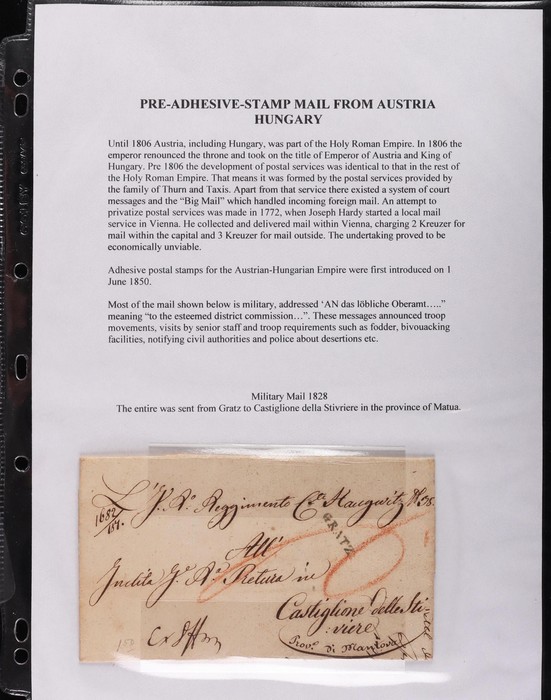 PRE-ADHESIVE-STAMP MAIL FROM AUSTRIA
HUNGARY
Until 1806 Austria, including Hungary, was part of the Holy Roman Empire. In 1806 the
emperor renounced the throne and took on the title of Emperor of Austria and King of
Hungary. Pre 1806 the development of postal services was identical to that in the rest of
the Holy Roman Empire. That means it was formed by the postal services provided by
the family of Thurn and Taxis. Apart from that service there existed a system of court
messages and the “Big Mail” which handled incoming foreign mail. An attempt to
privatize postal services was made in 1772, when Joseph Hardy started a local mail
service in Vienna. He collected and delivered mail within Vienna, charging 2 Kreuzer for
mail within the capital and 3 Kreuzer for mail outside. The undertaking proved to be
economically unviable.
Adhesive postal stamps for the Austrian-Hungarian Empire were first introduced on 1
June 1850.
Most of the mail shown below is military, addressed ‘AN das löbliche Oberamt…..”
meaning “to the esteemed district commission…”. These messages announced troop
movements, visits by senior staff and troop requirements such as fodder, bivouacking
facilities, notifying civil authorities and police about desertions etc.
Military Mail 1828
The entire was sent from Gratz to Castiglione della Stivriere in the province of Matua.
Reggimento Haugwitz
1682
GRATZ
All'
Inclita Pretura in
Castiglione delle Sti-
viere
Prov.ª di Mantova